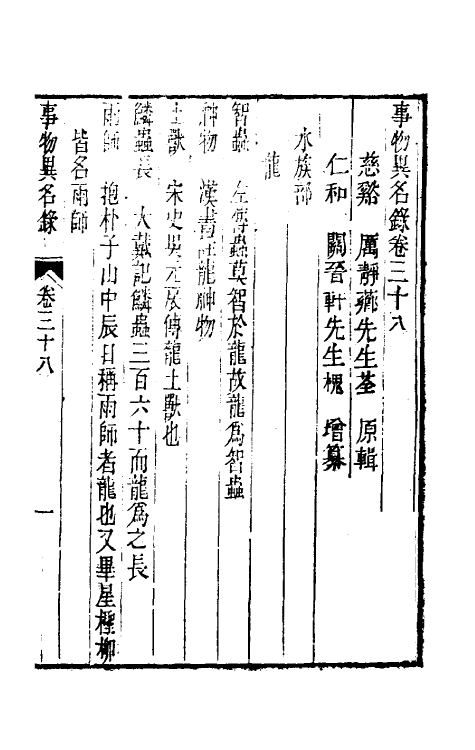 事物異名錄卷三十八
慈谿　厲靜薌先生荃　原輯
仁和　關晉軒先生槐　增纂
水族部
龍
智蟲　左傳蟲莫智於龍故龍爲智蟲
神物　漢書註龍神物
土獸　宋史吳元扆傳龍土獸也
鱗蟲長　大戴記鱗蟲三百六十而龍爲之長
雨師　抱朴子山中辰日稱雨師者龍也又畢星檉柳
皆名雨師
事物異名錄　卷三十八　一